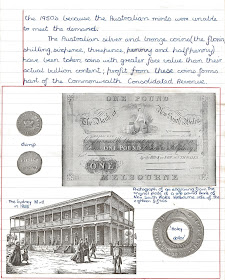 the 1950s because the Australian mints were unable
to meet the demand.
The Australian silver and bronze coins (the florin,
shilling, sixpence, threepence, penny and halfpenny)
have been token coins with greater face value than their
actual bullion content; profit from these coins forms
part of the Commonwealth Consolidated Revenue.
ONE POUND
The Bank of New South Wales
ONE POUND
ONE
dump
Photograph of an engraving from the
original plate of a £1 note Bank of
New South Wales
The Sydney Mint
in 1888
holey
dollar